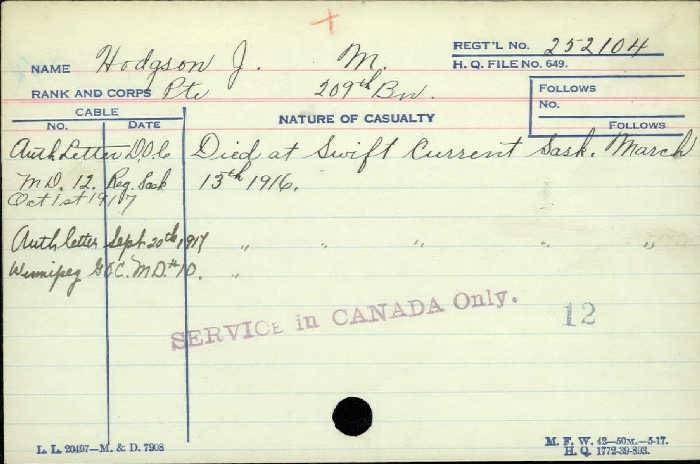 REGT'L NO. 252104
NAME Hodgson J. M.
H. Q. FILE NO. 649.
RANK AND CORPS Pte 209th Bn.
FOLLOWS
CABLE
NO.
NO. DATE
NATURE OF CASUALTY
FOLLOWS
Auth Letter D.O.C Died at Swift Current Sask. March
M D. 12. Reg. Sask 13th 1916.
Oct 1st 1917
Auth letter Sept 20th 1917 " " " " "
Winnipeg G.O.C. M D. # 10. "
SERVICE in CANADA Only.
12
L. L. 20497—M. & D. 7908
M. F. W. 42—50M.—5-17.
H. Q. 1772-39-893.